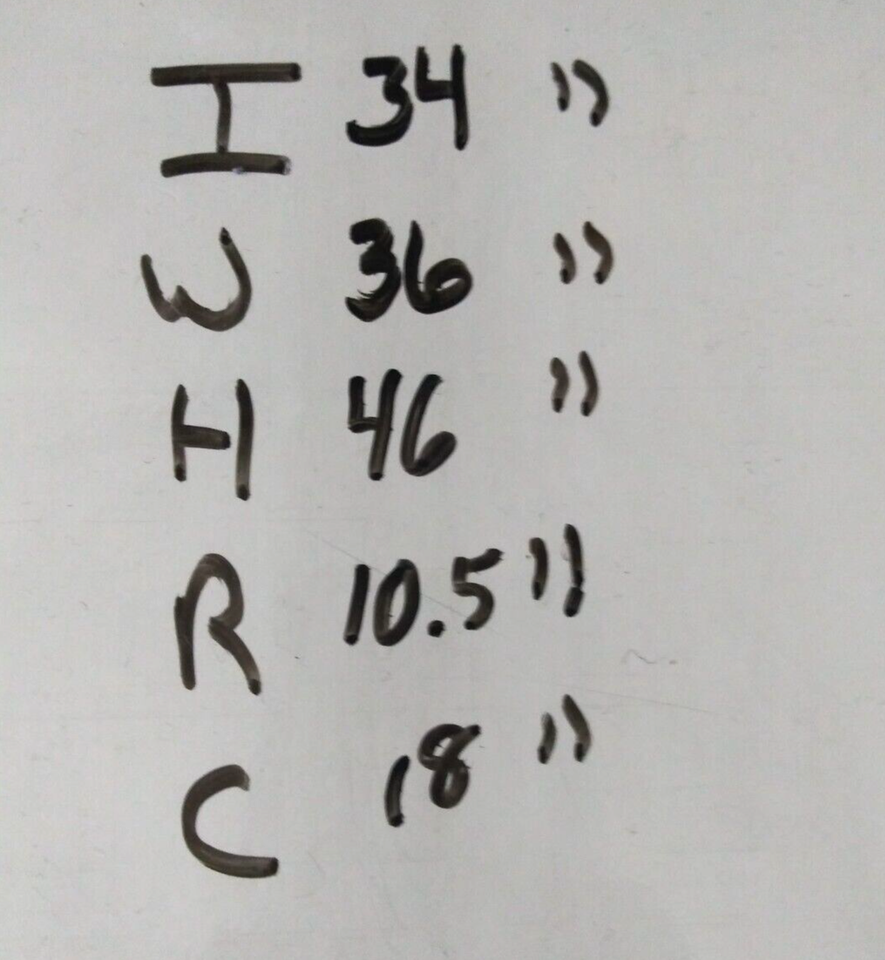 I 34 "
W 36 "
H 46 "
R 10.5 "
C 18 "